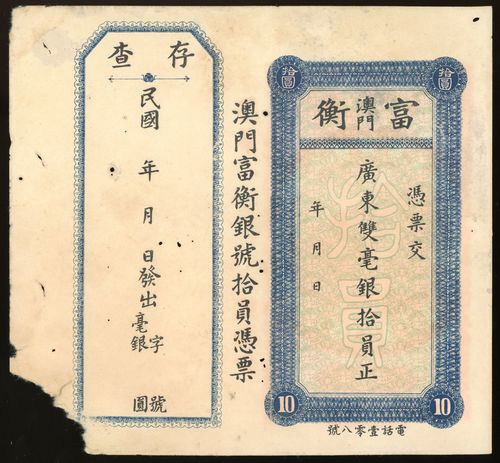 拾圓
拾圓
富澳門衡
憑票交
廣東雙毫銀拾員正
年月日
拾員
10
10
電話壹零八號
澳門富衡銀號拾員憑票
存查
民國年月日發出
毫銀字
號圓